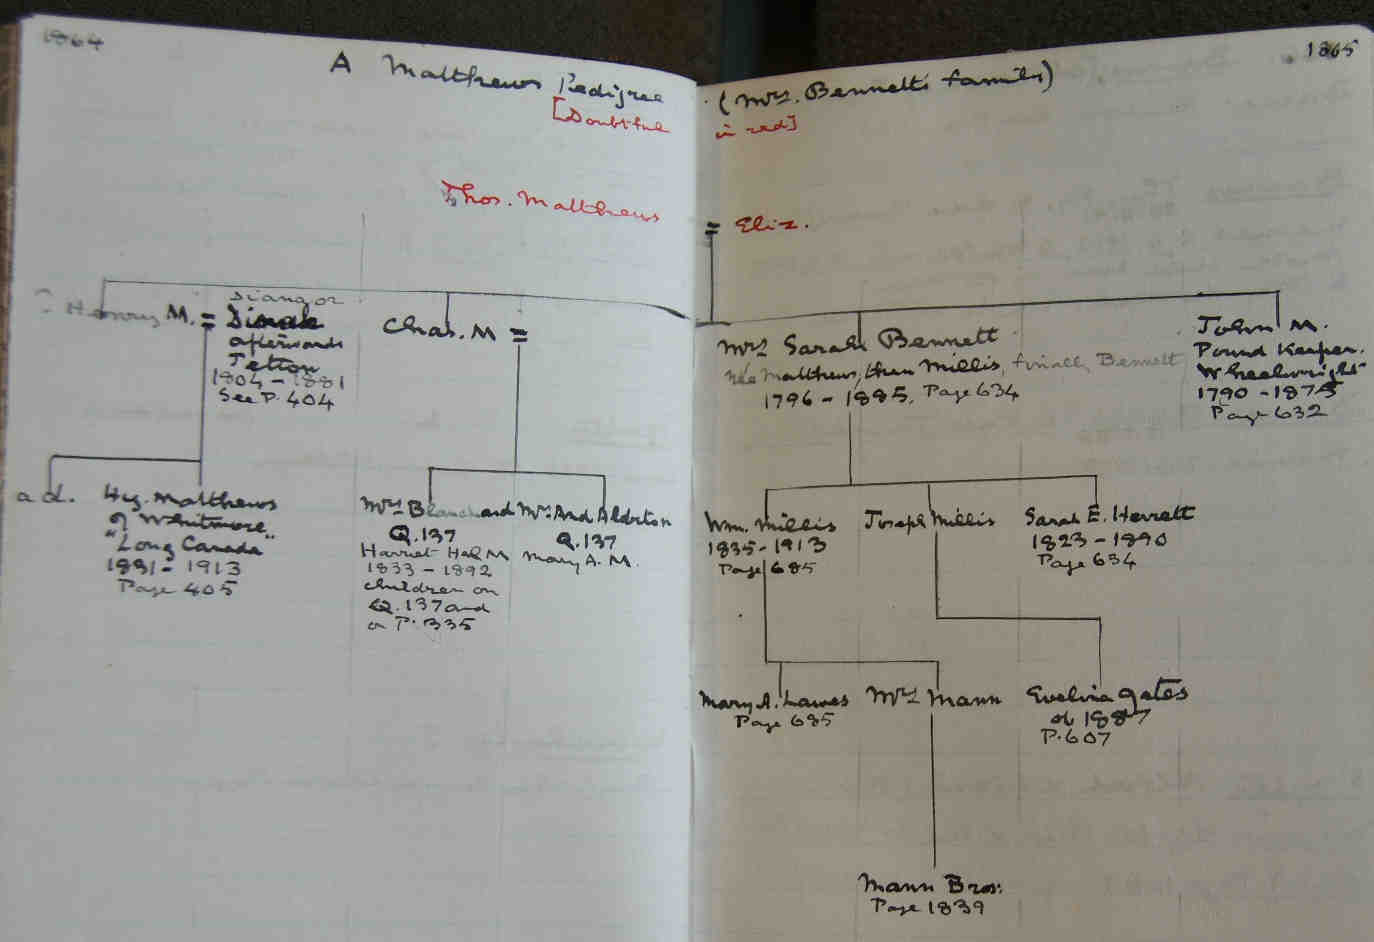 1864
A Matthews Pedigree
[Doubtful
Thos. Matthews
Henry M. =
Diana or
Dinah
afterwards
Tetton
1804 - 1881
See P. 404
Chas. M =
a d.
Hy. Matthews
of Whitmore
"Long Canada"
1831 - 1913
Page 405
Mrs Blanchard
Q.137
Harriet Hal M
1833 - 1892
children on
Q.137 and
on P. 335
Mrs And Aldviton
Q.137
Mary A. M.
1865
(Mrs. Bennett's family)
in red]
= Eliz.
Mrs Sarah Bennett
née Matthews, then Millis, finally Bennett
1796 - 1885, Page 634
John M.
Pound Keeper.
Wheelwright
1790 - 1875
Page 632
Wm. Millis
1835 - 1913
Page 685
Joseph Millis
Sarah E. Herrett
1823 - 1890
Page 634
Mary A. Lawes
Page 685
Mrs Mann
Evelina Gates
of 1887
P. 607
Mann Bros:
Page 1839